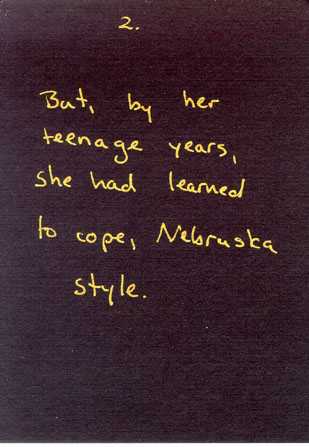 2.
But, by her
teenage years,
she had learned
to cope, Nebruska
style.